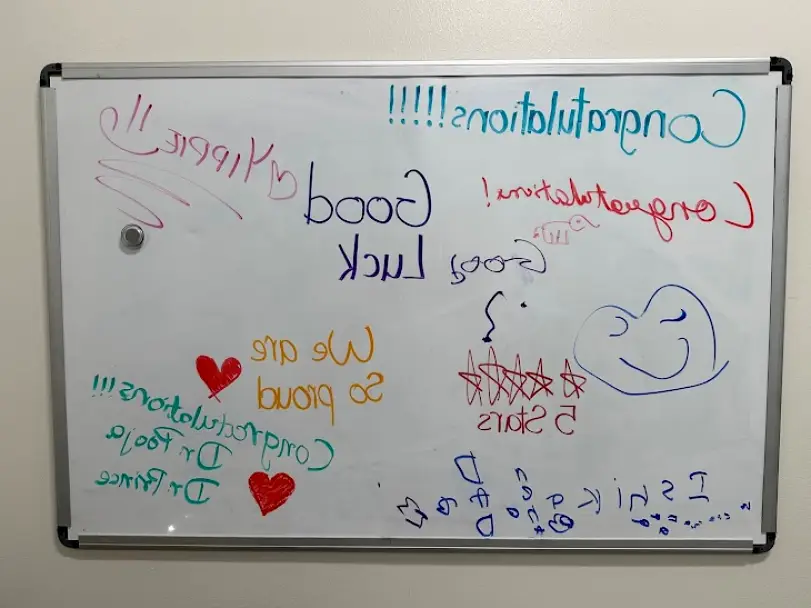 Congratulations!!!!!!
YIPPIE!!
Congratulations!
Good
Luck
Good
We are
So proud
5 Stars
Congratulations!!!
Dr. Pooja
Dr. Prince
IshiKa
DAD